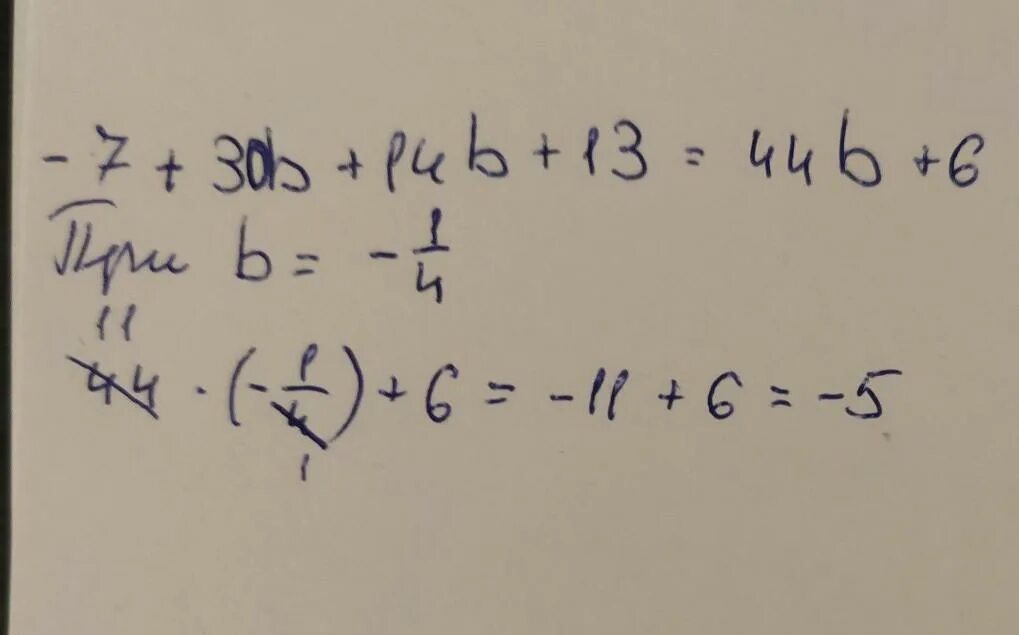 -7 + 30b + 14b + 13 = 44b + 6
При b = -1/4
44 · (-1/4) + 6 = -11 + 6 = -5
11
1